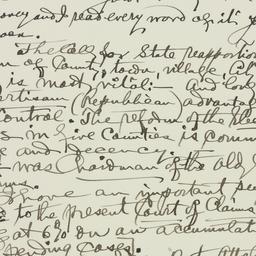 oney and I read every word of it
The call for State reapportion
of County, town, village, City
is most vital:- and
ertisan (republican) advantag
ontrol. The reform of the
s in five Counties is comm
e and Decency.
- was Chairman of the old
an important
e to the present Court of Claims
at 6% on an accumulat
pending cases.